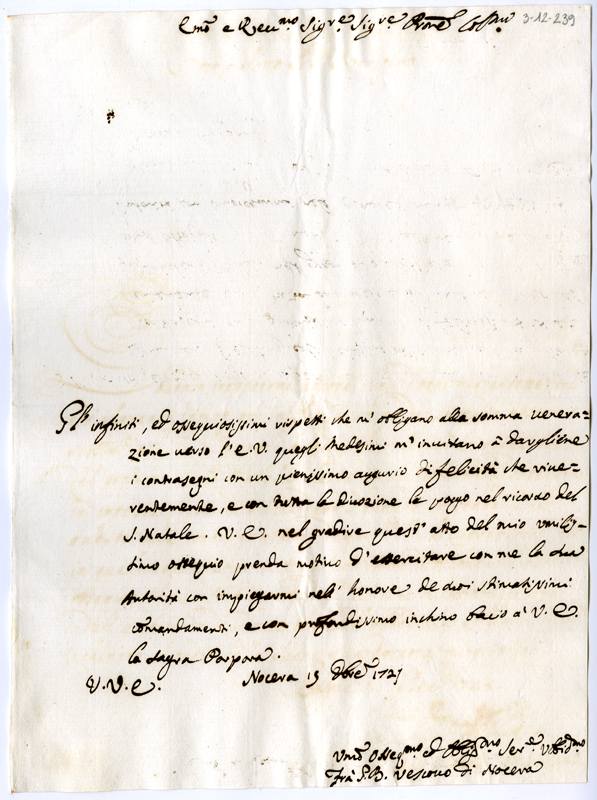 3-12-239
Em̃o e Reu.mo Sig.re Sig.re Pron̄e Col.mo
Gl' infiniti, ed ossequiosissimi rispetti che m' obligano alla somma venera=
zione uerso l' E. V. quegli medesimi m' inuitano à dargliene
i contrasegni con un pienissimo augurio di felicità che riue=
rentemente, e con tutta la diuozione le porgo nel ricordo del
S. Natale. V. E. nel gradire quest' atto del mio umilis=
simo ossequio prenda motiuo d' essercitare con me la sua
Autorità con impiegarmi nell' honore de suoi stimatissimi
comandamenti, e con profondissimo inchino bacio à V. E.
la sagra Porpora.
V. V. E. Nocera 15 Xbre 1727
Vm̃o Osseq.mo ed Obl.mo Ser.e Vbbid.mo
Frà G. B. Vescouo di Nocera